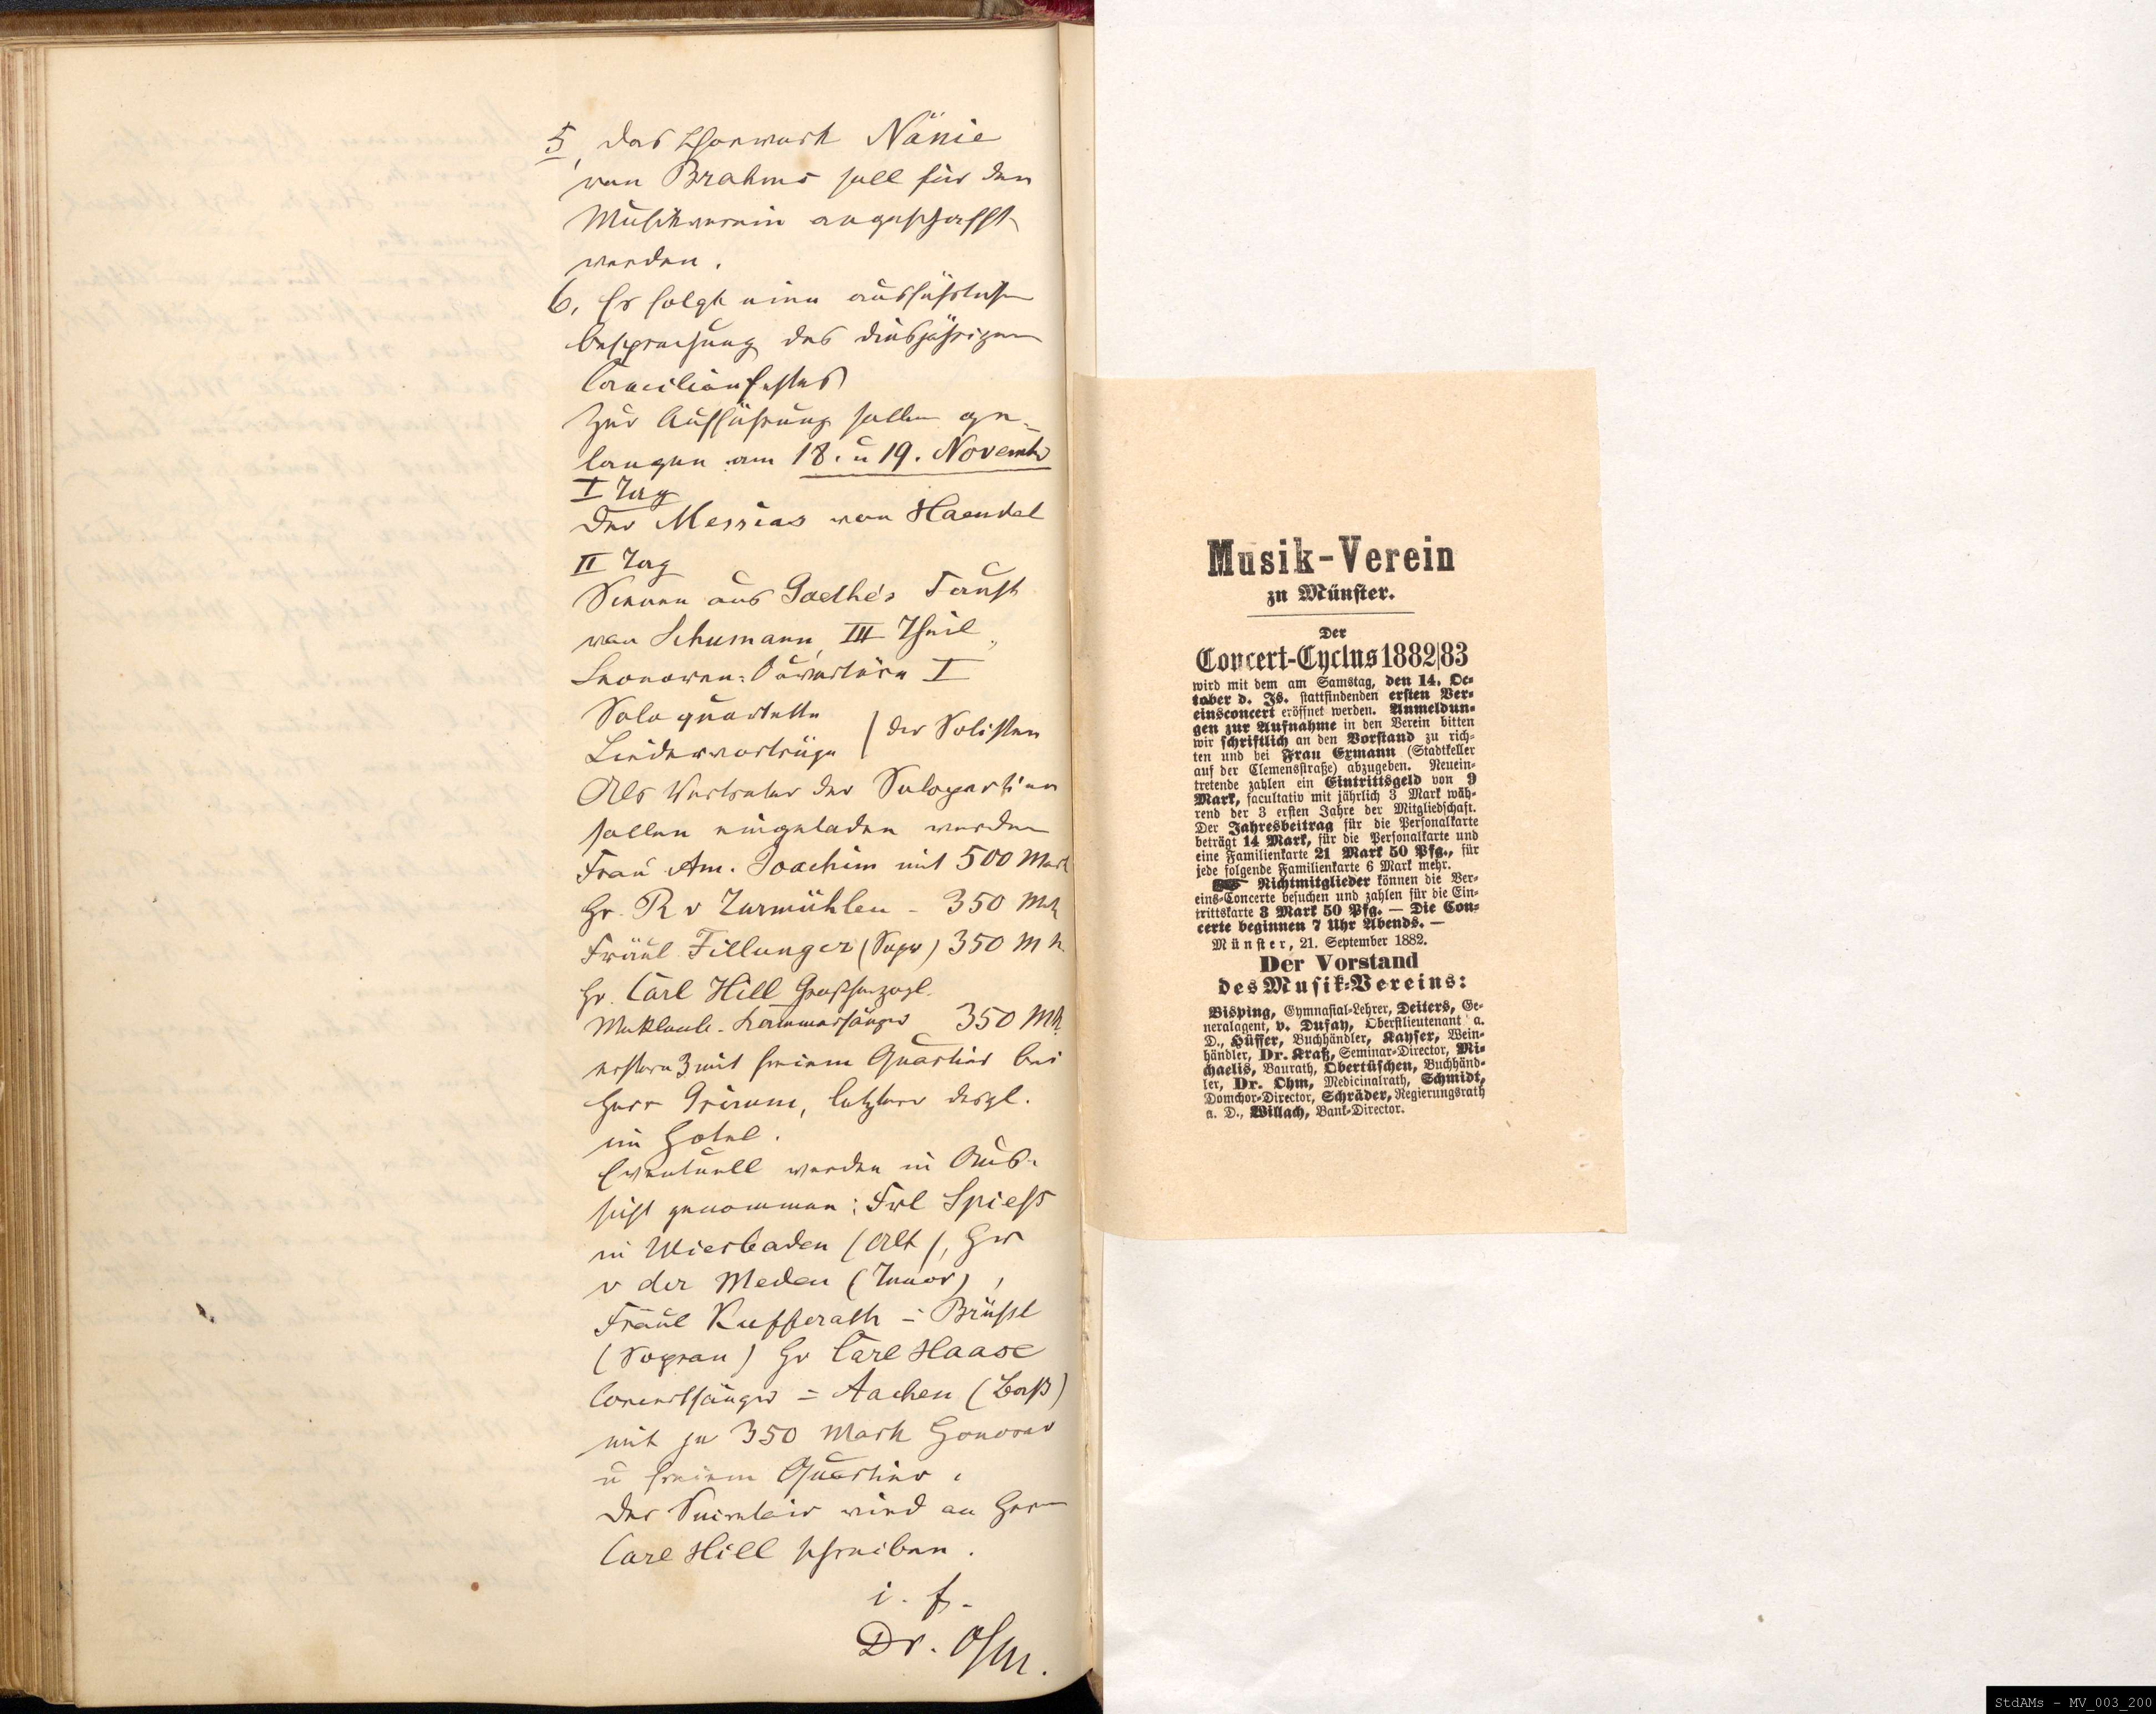 5, Das Chorwerk Nänie
von Brahms soll für den
Musikverein angeschafft
werden.
6, Es folgt eine ausführliche
Besprechung des diesjährigen
Caecilienfestes
Zur Aufführung sollen ge-
langen am 18. u 19. Novemb
I Tag
Der Messias von Haendel
II Tag
Scenen aus Goethe's Faust
von Schumann, III Theil,
Leonoren-Ouvertüre I
Soloquartette
Liedervorträge ( der Solisten
Als Vertreter der Solopartien
sollen eingeladen werden
Frau Am. Joachim mit 500 Mark
Hr. R v Zurmühlen - 350 Mk
Fräul Fillunger (Sopr) 350 Mk
Hr. Carl Hill Großherzogl.
Meklenb. Kammersänger 350 Mk
erstere 3 mit freiem Quartier bei
Herr Grimm, letzterer desgl.
im Hotel.
Eventuell werden in Aus-
sicht genommen: Frl Spiess
in Wiesbaden (Alt), Hr
v der Meden (Tenor),
Fräul Kufferath = Brüssel
(Sopran) Hr Carl Haase
Concertsänger = Aachen (Baß)
mit je 350 Mark Honorar
u freiem Quartier.
Der Secretair wird an Herrn
Carl Hill schreiben.
i. f.
Dr. Ohm.
Musik-Verein
zu Münster.
Der
Concert-Cyclus 1882/83
wird mit dem am Samstag, den 14. Oc-
tober d. Js. stattfindenden ersten Ver-
einsconcert eröffnet werden. Anmeldun-
gen zur Aufnahme in den Verein bitten
wir schriftlich an den Vorstand zu rich-
ten und bei Frau Exmann (Stadtkeller
auf der Clemensstraße) abzugeben. Neuein-
tretende zahlen ein Eintrittsgeld von 9
Mark, facultativ mit jährlich 3 Mark wäh-
rend der 3 ersten Jahre der Mitgliedschaft.
Der Jahresbeitrag für die Personalkarte
beträgt 14 Mark, für die Personalkarte und
eine Familienkarte 21 Mark 50 Pfg., für
jede folgende Familienkarte 6 Mark mehr.
☛ Nichtmitglieder können die Ver-
eins-Concerte besuchen und zahlen für die Ein-
trittskarte 3 Mark 50 Pfg. — Die Con-
certe beginnen 7 Uhr Abends. —
Münster, 21. September 1882.
Der Vorstand
des Musik-Vereins:
Bisping, Gymnasial-Lehrer, Deiters, Ge-
neralagent, v. Dufay, Oberstlieutenant a.
D., Hüffer, Buchhändler, Kayser, Wein-
händler, Dr. Kraß, Seminar-Director, Mi-
chaelis, Baurath, Obertüschen, Buchhänd-
ler, Dr. Ohm, Medicinalrath, Schmidt,
Domchor-Director, Schräder, Regierungsrath
a. D., Willach, Bank-Director.
StdAMs - MV_003_200